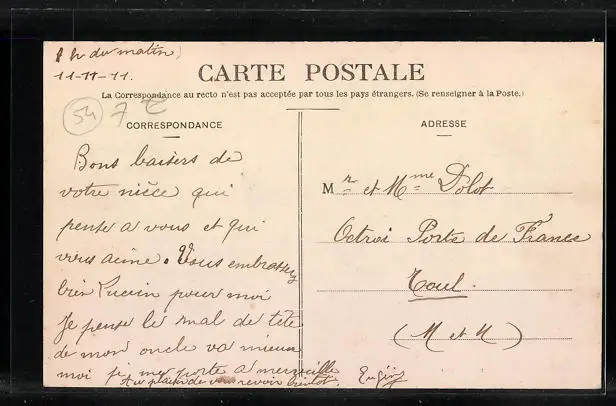 1 h du matin)
11-11-11.
CARTE POSTALE
La Correspondance au recto n'est pas acceptée par tous les pays étrangers. (Se renseigner à la Poste.)
54 7 €
CORRESPONDANCE
Bons baisers de
votre nièce qui
pense a vous et qui
vous aime. Vous embrasserez
bien Lucien pour moi
Je pense le mal de tête
de mon oncle va mieux
moi je me porte a merveille
Au plaisir de vous revoir bientôt.
ADRESSE
Mr et Mme Dolot
Octroi Porte de France
Toul.
(M et M)